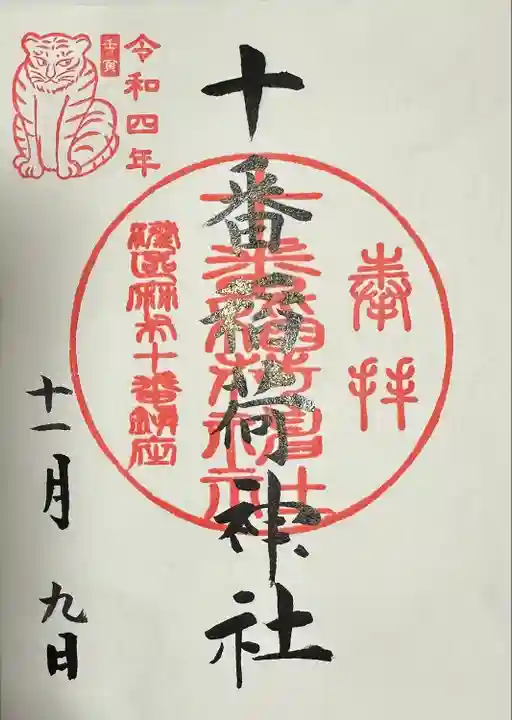 奉拝
十番稲荷神社
港区麻布十番鎮座
令和四年
壬寅
十一月 九日